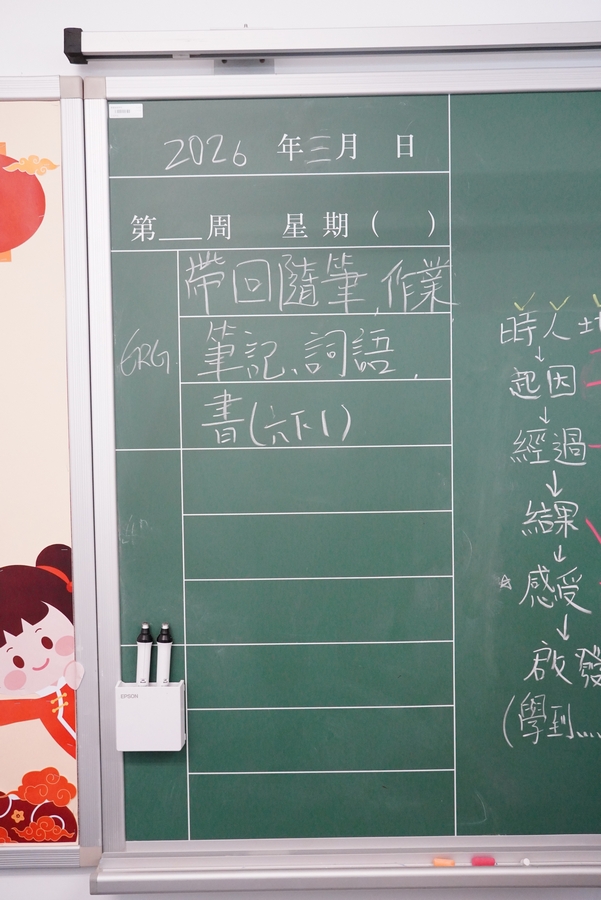 2026 年三月 日
第 周 星期( )
帶回隨筆,作業
筆記、詞語,
書(六下1)
時人
起因
經過
結果
感受
啟發
(學到....
EPSON